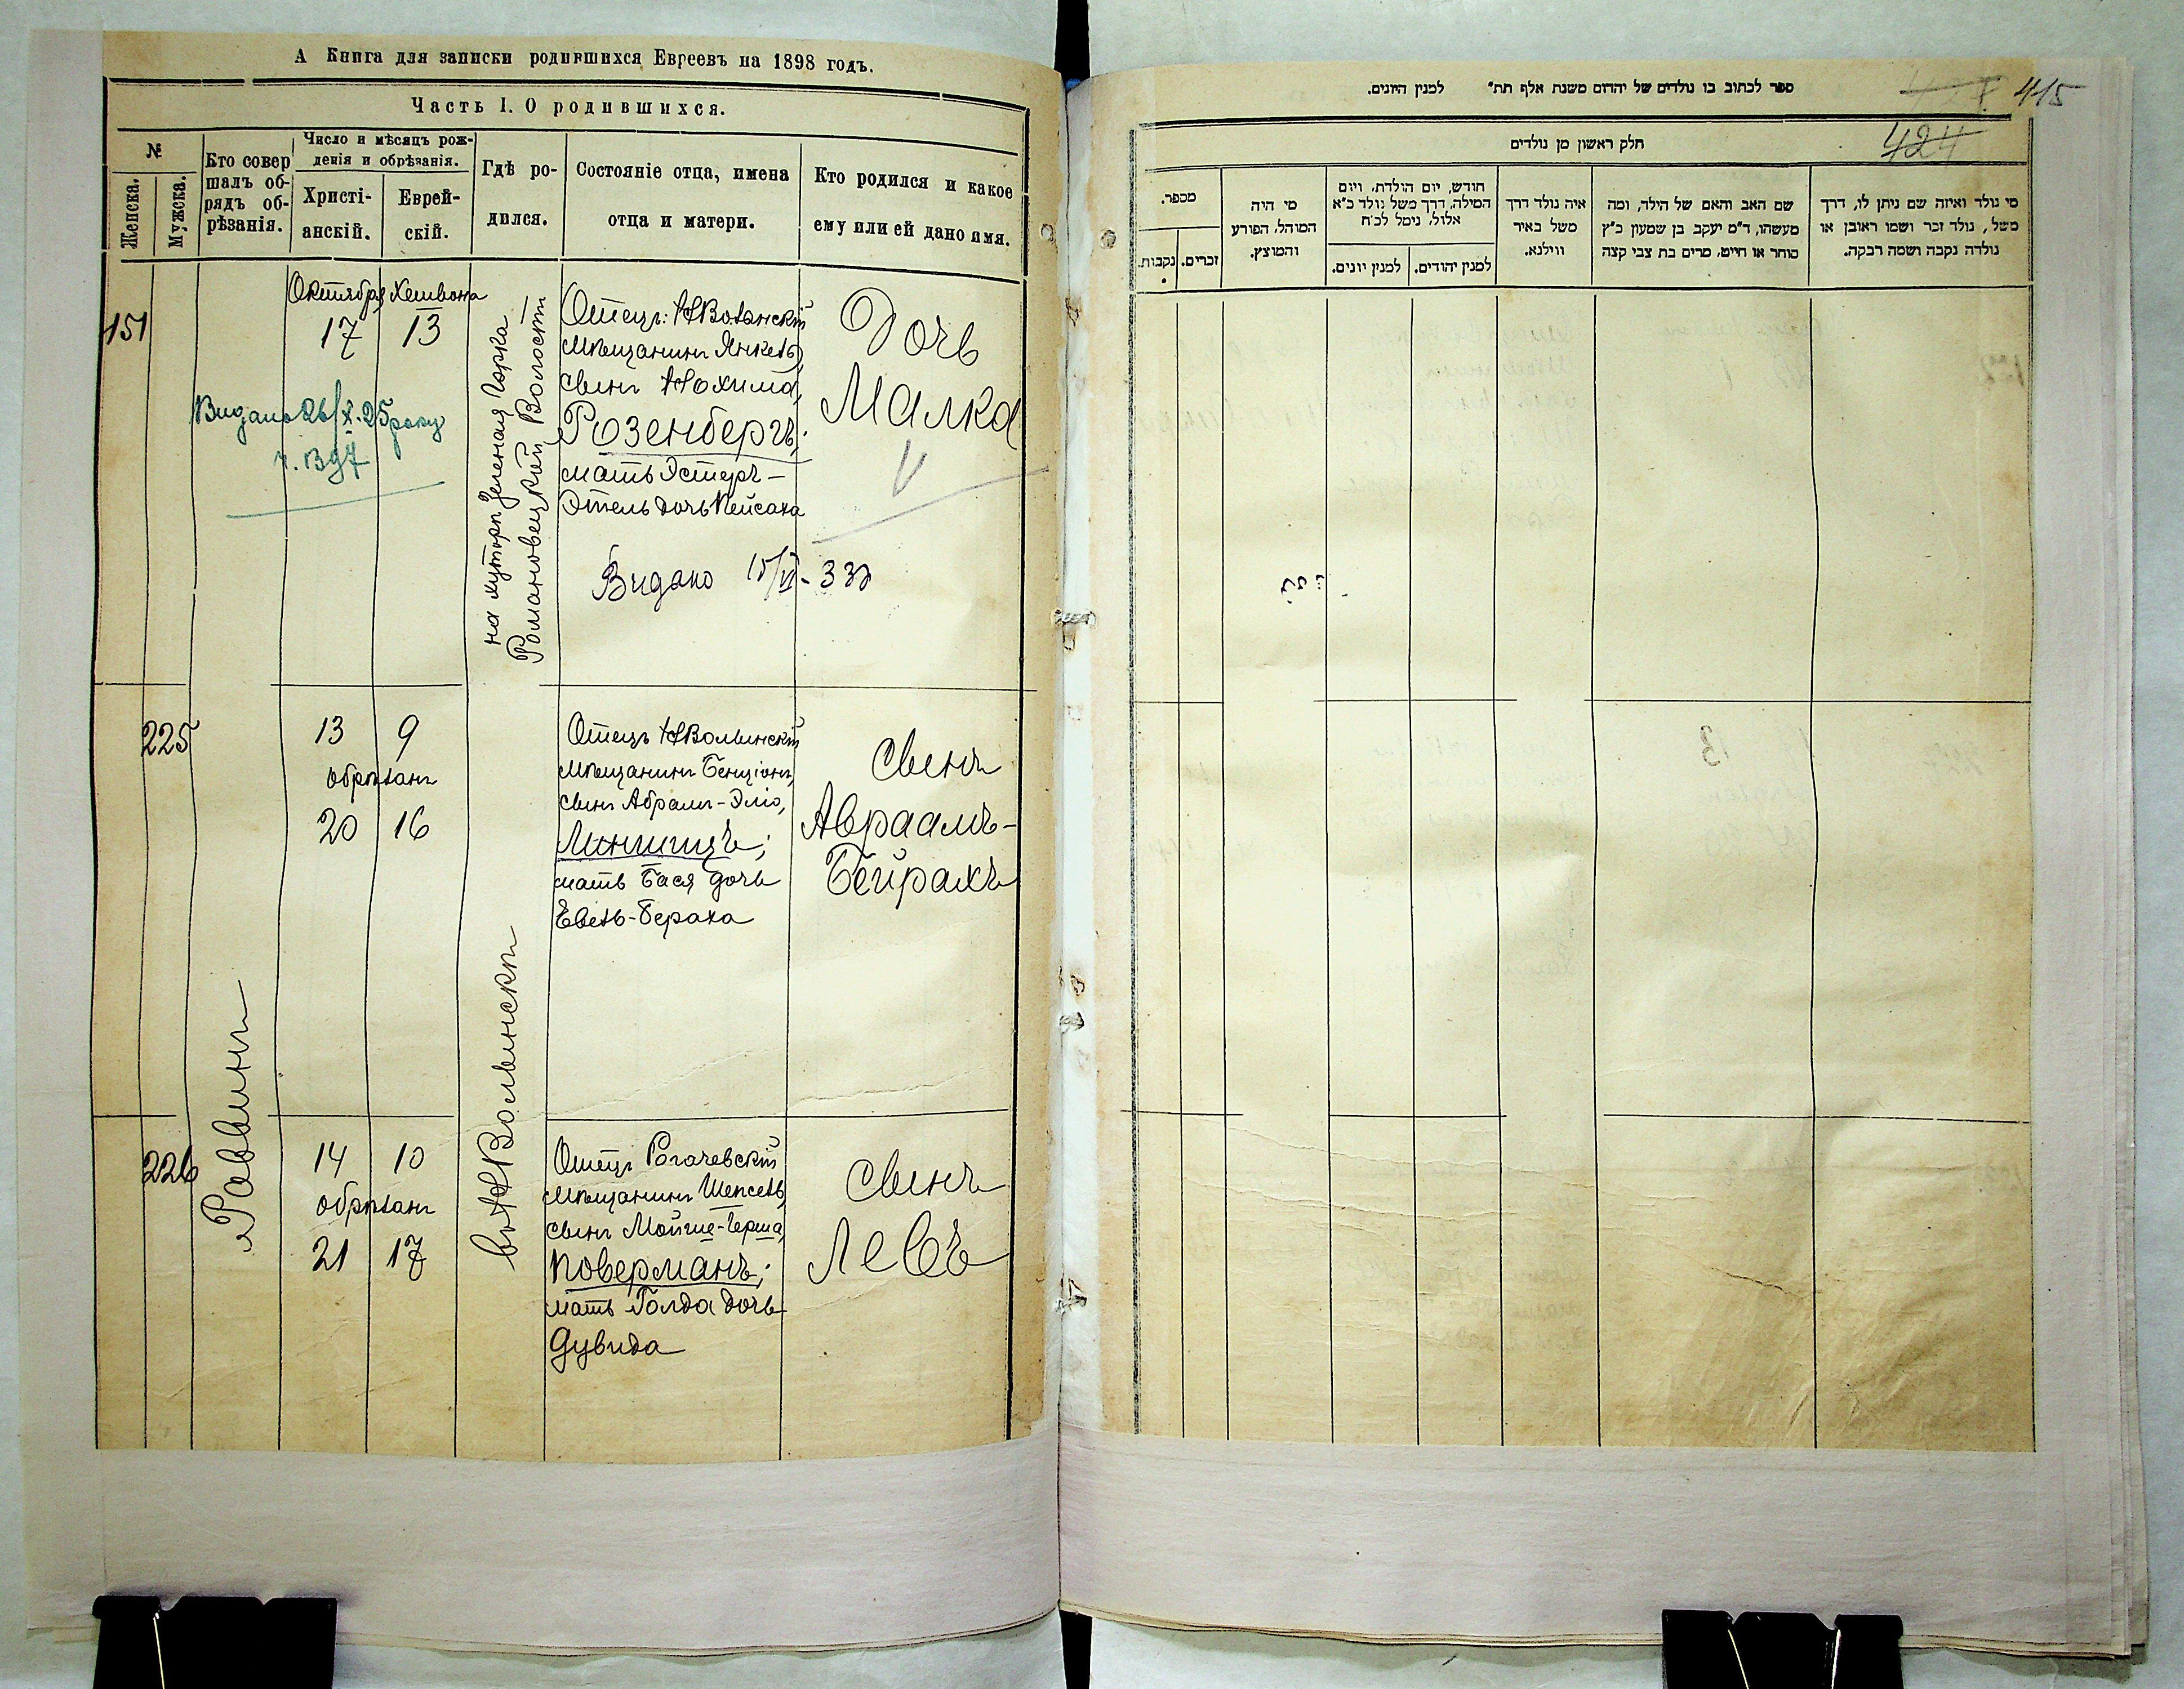 А Книга для записки родившихся Евреевъ на 1898 годъ.
Часть I. О родившихся.
№
Женска.
Мужска.
Кто совер
шалъ об-
рядъ об-
рѣзанія.
Число и мѣсяцъ рож-
денія и обрѣзанія.
Христі-
анскій.
Еврей-
скій.
Гдѣ ро-
дился.
Состояніе отца, имена
отца и матери.
Кто родился и какое
ему или ей дано имя.
151
Октября Хешвона
17 13
Видано 26/X.25 року
ч. 1397
на хуторѣ Зеленая Горка
Романовецкой Волости
Отецъ: НВолынскій
мѣщанинъ Янкель
сынъ Нохима,
Розенбергъ;
мать Эстеръ-
Этель дочь Пейсаха
Дочь
Малка
Видано 15/VI-33
225
13 9
обрѣзанъ
20 16
Отецъ НВолынскій
мѣщанинъ Бенціонъ,
сынъ Абрамъ-Эліо,
мать Бася дочь
сынъ
Авраамъ-
Бейрахъ
Раввинъ
въ НВолынскѣ
226
14 10
обрѣзанъ
21 17
Отецъ Рогачевскій
мѣщанинъ Шепсель,
сынъ Мойше-Герша,
Коверманъ;
мать Голда дочь
Дувида
сынъ
Левъ
ספר לכתוב בו נולדים של יהדום משנת אלף תת״ למנין היונים.
415
424
חלק ראשון מן נולדים
מספר.
זכרים.
נקבות.
מי היה
המוהל, הפורע
והמוצץ.
חודש, יום הולדת, ויום
המילה, דרך משל נולד כ״א
אלול, נימל לכ״ח
למנין יהודים.
למנין יונים.
איה נולד דרך
משל באיר
ווילנא.
שם האב והאם של הילד, ומה
מעשהו, ד״מ יעקב בן שמעון כ״ץ
סוחר או חייט, מרים בת צבי קצה
מי נולד ואיזה שם ניתן לו, דרך
משל, נולד זכר ושמו ראובן או
נולדה נקבה ושמה רבקה.